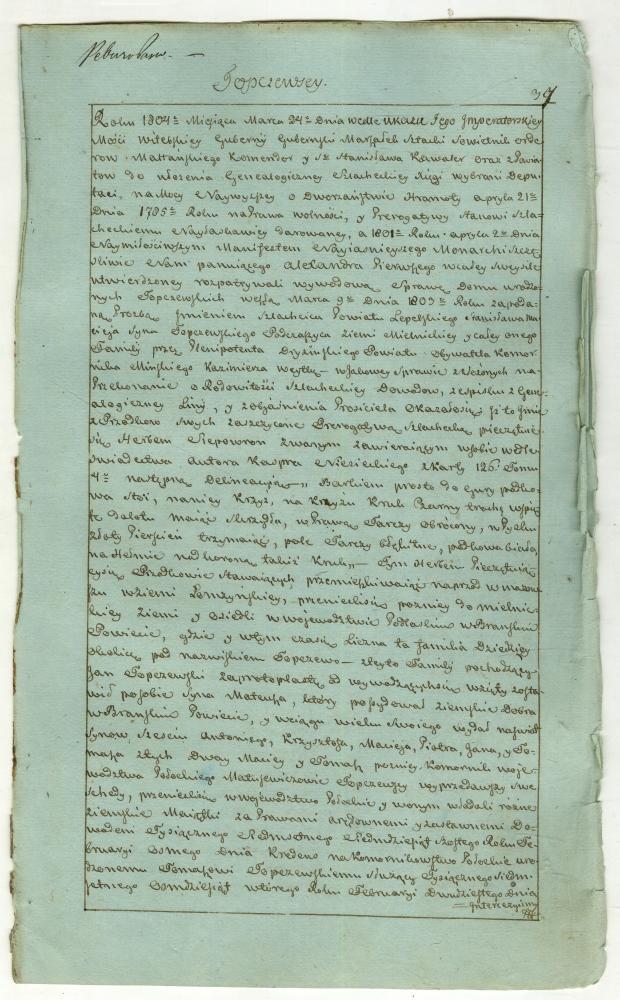 Topczewscy.
39
Roku 1804 Miesiąca Marca 24 Dnia wedle ukazu Jego Imperatorskiey
Mości Witebskiey Gubernij Gubernski Marszałek Szlachi Sowietnik orde
row Maltanskiego Komendor y St Stanisława Kawaler oraz z Powia
tow do ułożenia Genealogiczney Szlacheckiey Xięgi wybrani Depu
taci, na Mocy Naywyższey o Dworzaństwie Hramoty apryla 21
Dnia 1785 Roku na Prawa wolności, y Prerogatywy Stanowi Szla-
checkiemu Nayłaskawiey darowaney, a 1801 Roku apryla 2 Dnia
Naymiłościwszym Manifestem Nayiasnieyszego Monarchi Szczę
śliwie Nam panuiącego Alexandra Pierwszego w całey swey sile
utwierdzoney rozpatrywali wywodową Sprawę Domu urodzo
nych Topczewskich weszłą Marca 9 Dnia 1803 Roku za poda-
ną Prozbą Imieniem Szlachcica Powiatu Lepelskiego Stanisława Ma
cieja Syna Topczewskiego Podczaszyca Ziemi Mielnickiey y całey onego
Familij przez Plenipotenta Dryzinskiego Powiatu Obywatela Komor
nika Mińskiego Kazimierza w takowey Sprawie złożonych na
Przekonanie o Rodowitości Szlacheckiey Dowodow, z opisku z Gene
alogiczney Linij, y z obiaśnienia Prosiciela okazało się iż to Imie
z Przodkow swych zaszczycone Prerogatywą Szlachecką pieczętuie
się Herbem Slepowron zwanym zawieraiącym w sobie wedle
swiadectwa Autora Kaspra Niesieckiego z karty 126 Tomu
4 następną Delineacyią, Barkiem prosto do gury podko
wa stoi, na niey Krzyż, na Krzyżu Kruk Czarny trochę wspię
ty do lotu maiąc skrzydła, w Prawą Tarczy obrocony, w Pysku
złoty Pierscień trzymaiąc, pole Tarczy błękitne, podkowa biała,
na Hełmie nad koroną takiż Kruk, Tym Herbem Pieczętuią
cy się Przodkowie Stawaiących przemieszkiwaiąc naprzod w mazow
szu w Ziemi Łomzynskiey, przenieśli się pozniey do mielnic
kiey Ziemi y osiedli w wojewodztwie Podlaskim w Branskim
Powiecie, gdzie y w tym czasie Liczna ta familia Dziedziczy
okolicę pod nazwiskiem Topczewo z teyto Familij pochodzący
Jan Topczewski za protoplastę od wywodzących się wzięty zosta
wił po sobie syna Mateusza, ktory posiadował Ziemskie Dobra
w Branskim Powiecie, y w ciągu wieku swoiego wydał na świat
synow szesciu Antoniego, Krzysztofa, Macieja, Piotra, Jana, y To-
masza z tych Dway Maciey y Tomasz pozniey Komornik woje-
wodztwa Połockiego Matysewiczowie Topczewscy wyprzedawszy swe
schedy, przenieśli się w wojewodztwo Połockie y w onym władali różne
ziemskie Maiątki za Prawami arędownemi y zastawnemi Do-
wodem Tysiącznego Siedmsetnego Siedmdziesiąt szostego Roku Fe-
bruaryi osmego Dnia Kredens na Komornikowstwo Połockie uro-
dzonemu Tomaszowi Topczewskiemu służący Tysiącznego Siedm-
setnego osmdziesiąt wtorego Roku Februaryi Dwudziestego Dnia
Intercezyiny